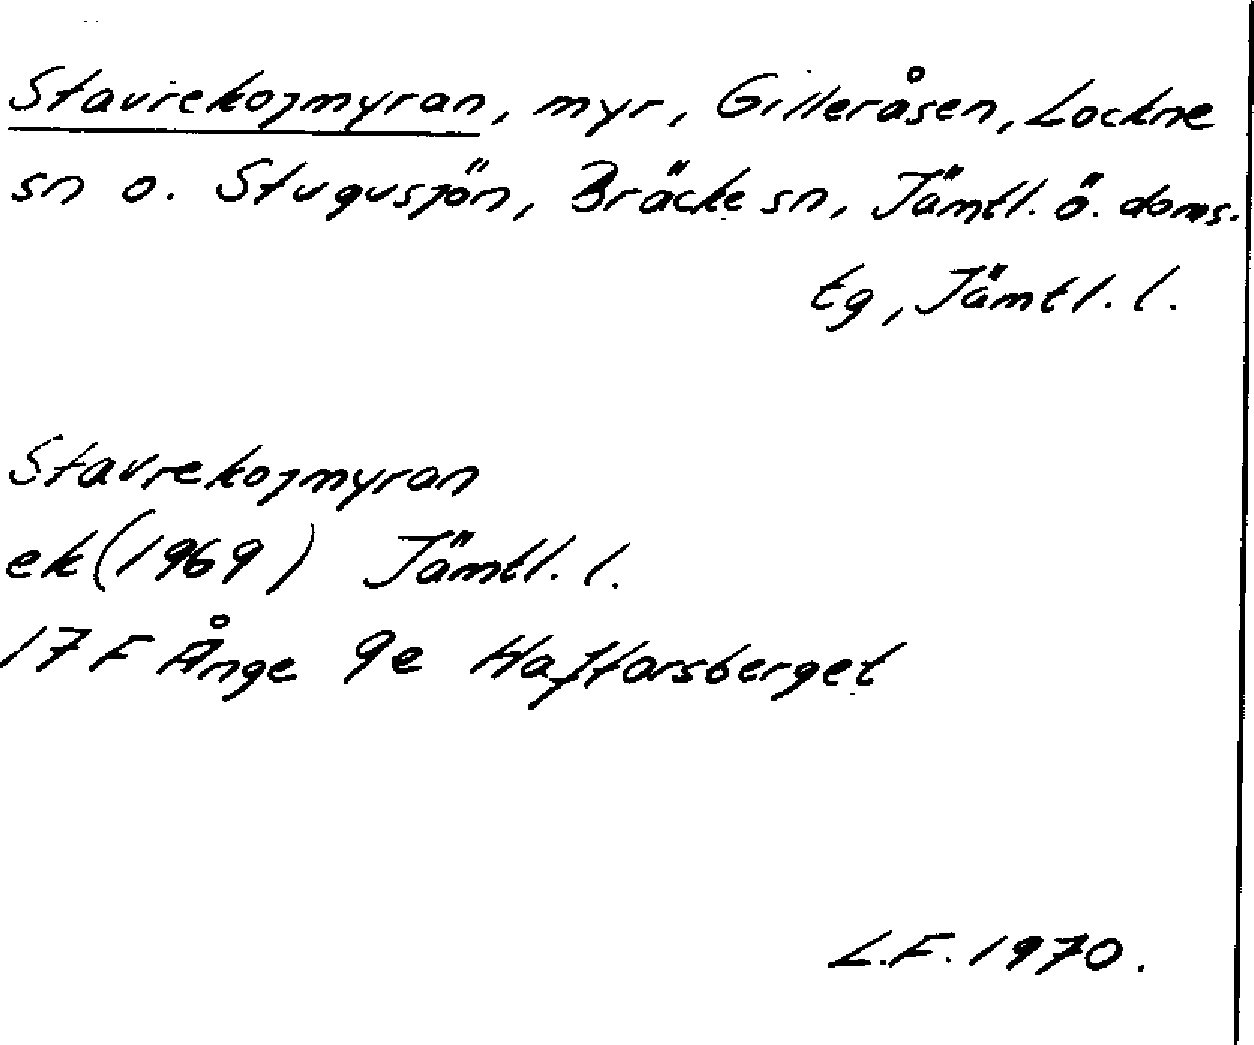 Stavrekojmyran, myr, Gilleråsen, Lockne
sn o. Stugusjön, Bräcke sn, Jämtl. ö. doms.
tg, Jämtl. l.
Stavrekojmyran
ek (1969) Jämtl. l.
17 F Ånge 9e Haftorsberget
L.F. 1970.